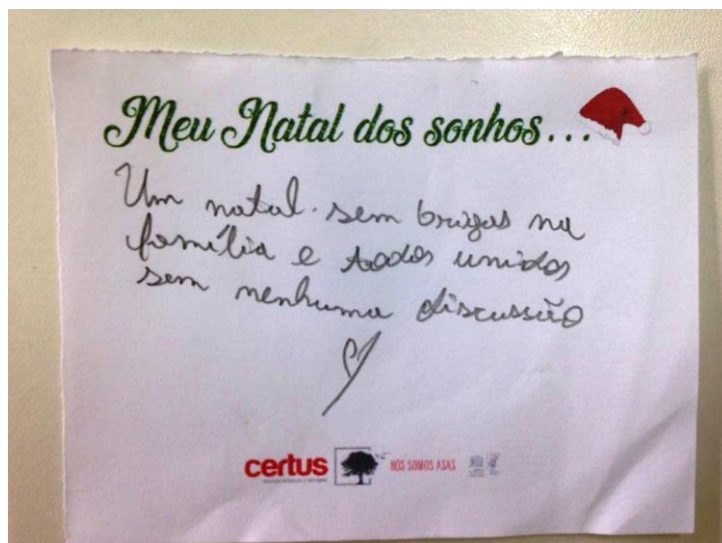 Meu Natal dos sonhos...
Um natal sem brigas na
família e todos unidos
sem nenhuma discussão
certus
NÓS SOMOS ASAS